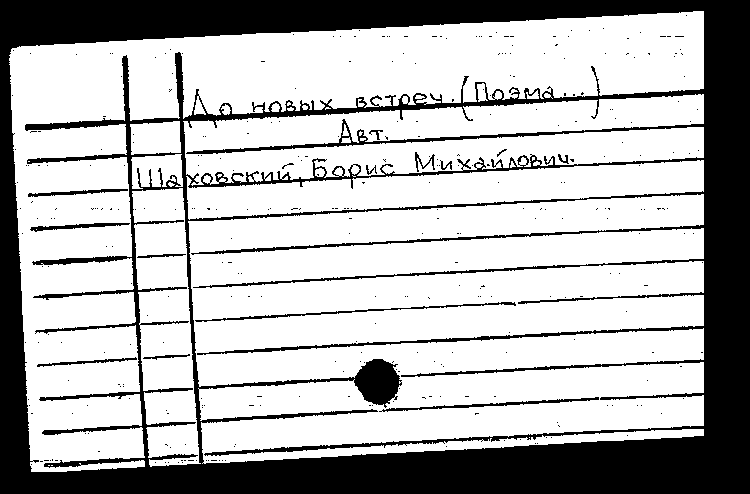 До новых встреч. (Поэма...)
Авт.
Шаховский, Борис Михайлович.